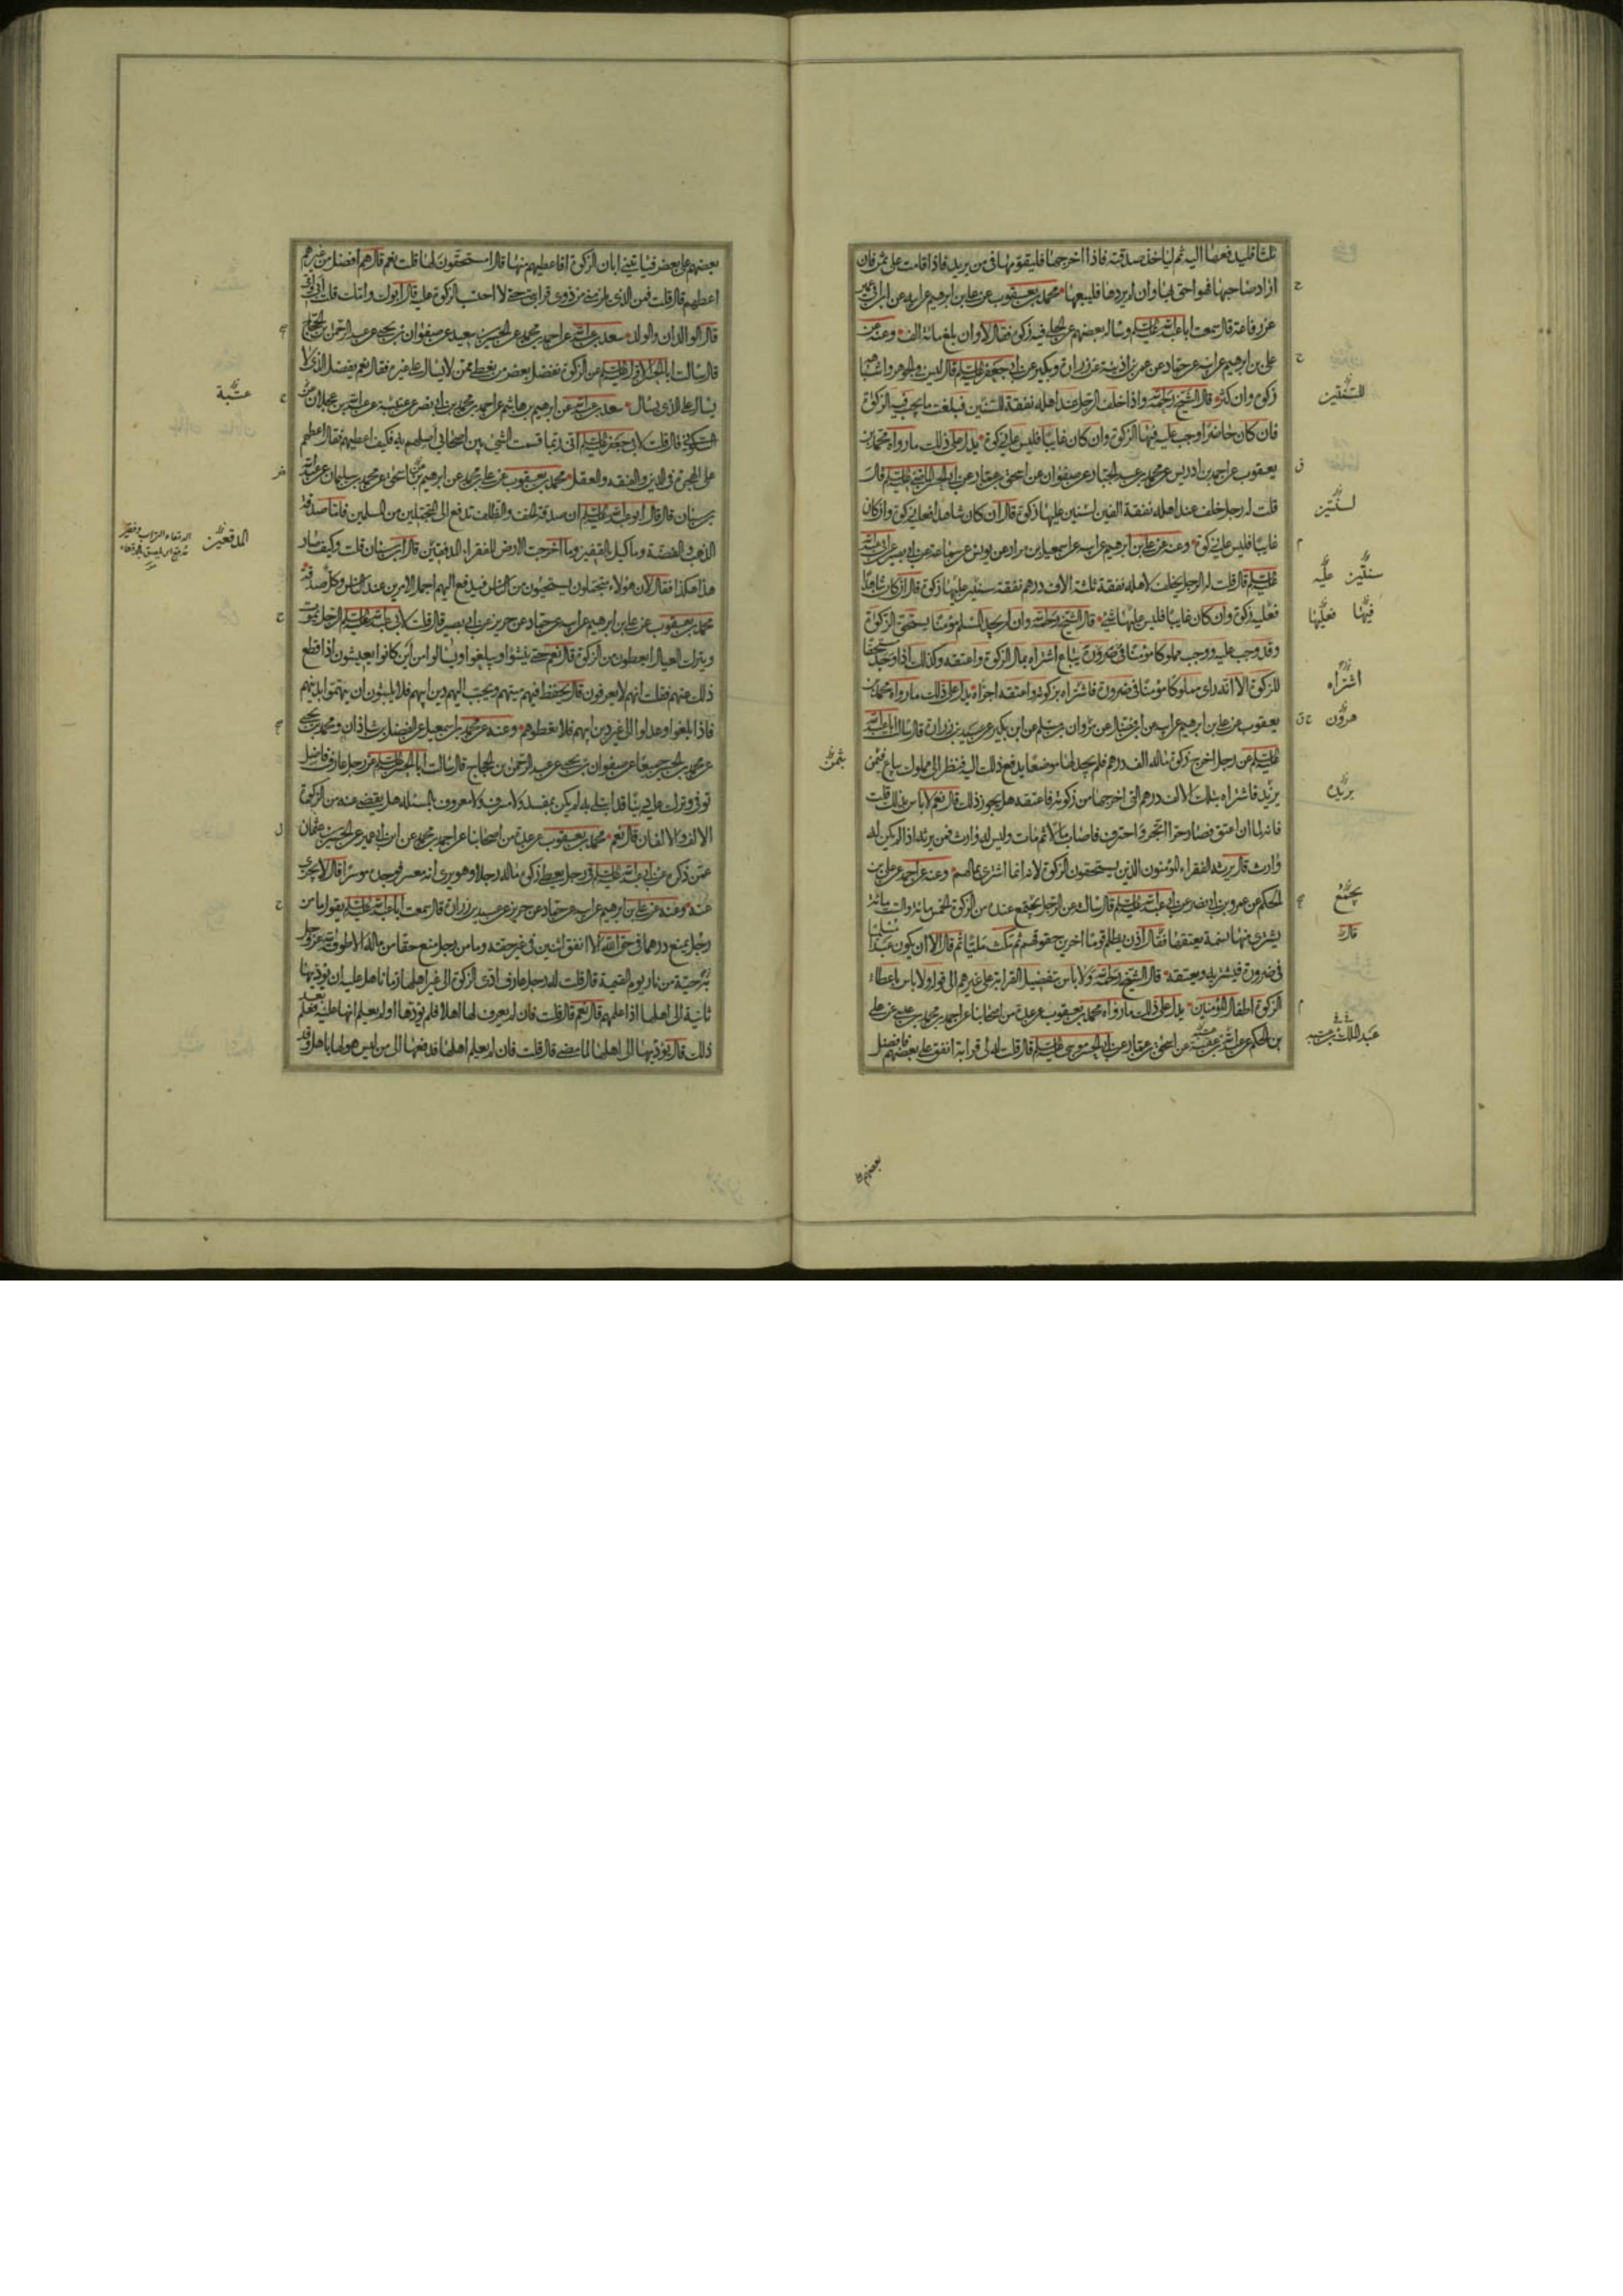 ثلثا فليدفعها اليه ثم لياخذ صدقته فاذا اخرجها فليقومها فى من يريد فاذا اقامت على ثمن فان
اراد صاحبها فهو احق بها وان لم يردها فليبعها محمد بن يعقوب عن على بن ابرهيم عن ابيه عن ابن ابى عمير
عن رفاعة قال سمعت ابا عبد الله عليه السلم وساله بعضهم عن الحلى فيه زكوة فقال لا وان بلغ مائة الف وعنه عن
على بن ابرهيم عن ابيه عن حماد عن عمر بن اذينة عن زرارة وبكير عن ابى جعفر عليه السلم قال ليس فى الجوهر واشباهه
زكوة وان كثر قال الشيخ رحمه الله واذا خلف الرجل عند اهله نفقة للسنتين فبلغت ما يجب فيه الزكوة
فان كان حاضرا وجب عليه فيها الزكوة وان كان غايبا فليس عليه زكوة يدل على ذلك ما رواه محمد بن
يعقوب عن احمد بن ادريس عن محمد بن عبد الجبار عن صفوان عن اسحق بن عمار عن ابى الحسن الماضى عليه السلم قال
قلت له رجل خلف عند اهله نفقة الفين لسنتين عليها زكوة قال ان كان شاهدا فعليه زكوة وان كان
غايبا فليس عليه زكوة وعنه عن على بن ابرهيم عن ابيه عن اسمعيل بن مرار عن يونس عن سماعة عن ابى بصير عن ابى عبد الله
عليه السلم قال قلت له الرجل يخلف لاهله نفقة ثلثة الاف درهم نفقة سنتين عليها زكوة قال ان كان شاهدا
فعليه زكوة وان كان غايبا فليس عليها شئ قال الشيخ رحمه الله وان لم يجد المسلم مؤمنا يستحق الزكوة
وقد وجب عليه ووجد مملوكا مؤمنا فى ضرورة يباع اشتراه بمال الزكوة واعتقه وكذلك اذا وجد مستحقا
للزكوة الا انه راى مملوكا مؤمنا فى ضرورة فاشتراه بزكوته واعتقه اجزاه يدل على ذلك ما رواه محمد بن
يعقوب عن على بن ابرهيم عن ابيه عن ابن فضال عن مروان بن مسلم عن ابن بكير عن عبيد بن زرارة قال سالت ابا عبد الله
عليه السلم عن رجل اخرج زكوة ماله الف درهم فلم يجد لها موضعا يدفع ذلك اليه فنظر الى مملوك يباع فيمن
يريد فاشتراه بتلك الالف درهم التى اخرجها من زكوته فاعتقه هل يجوز ذلك قال نعم لا باس بذلك قلت
فانه لما ان اعتق فصار حرا اتجر واحترف فاصاب مالا ثم مات وليس له وارث فمن يرثه اذا لم يكن له
وارث قال يرثه الفقراء المؤمنون الذين يستحقون الزكوة لانه انما اشترى بمالهم وعنه عن احمد عن على بن
الحكم عن عمرو بن ابى نصر عن ابى عبد الله عليه السلم قال سالته عن الرجل يجتمع عنده من الزكوة الخمس مائة والست مائة
يشترى منها نسمة يعتقها فقال اذن يظلم قوما اخرين حقوقهم ثم مكث مليا ثم قال الا ان يكون عبدا مسلما
فى ضرورة فيشتريه ويعتقه قال الشيخ رحمه الله ولا باس بتفضيل القرابة على غيرهم الى قوله ولا باس باعطاء
الزكوة اطفال المؤمنين يدل على ذلك ما رواه محمد بن يعقوب عن عدة من اصحابنا عن احمد بن محمد بن عيسى عن على
بن الحكم عن عبد الله بن عتبة عن اسحق بن عمار عن ابى الحسن موسى عليه السلم قال قلت له لى قرابة انفق على بعضهم فافضل
للسنتين
لسنتين
سنتين عليه
فيها فعليها
اشتراه
هرون
يريده
يجتمع
قال
عبد الملك بن عتبة
بعضهم على
بعضهم على بعض فياتينى ابان الزكوة افاعطيهم منها قال مستحقون لها قلت نعم قال هم افضل من غيرهم
اعطهم قال قلت فمن الذى يلزمنى من ذوى قرابتى حتى لا احتسب الزكوة عليه قال ابوك وامك قلت ابى وامى
قال الوالدان والولد سعد بن عبد الله عن احمد بن محمد عن الحسين بن سعيد عن صفوان بن يحيى عن عبد الرحمن بن الحجاج
قال سالت ابا الحسن الاول عليه السلم عن الزكوة نفضل بعض من يعطى ممن لا يسال على غيره فقال نعم يفضل الذى لا
يسال على الذى يسال سعد بن عبد الله عن ابرهيم بن هاشم عن احمد بن محمد بن ابى نصر عن عتيبة عن عبد الله بن عجلان
السكونى قال قلت لابى جعفر عليه السلم انى ربما قسمت الشئ بين اصحابى اصلهم به فكيف اعطيهم فقال اعطهم
على الهجرة فى الدين والفقه والعقل محمد بن يعقوب عن على بن محمد عن ابرهيم بن اسحق عن محمد بن سليمان عن عبد الله
بن سنان قال قال ابو عبد الله عليه السلم ان صدقة الخف والظلف تدفع الى المتجملين من المسلمين فاما صدقة
الذهب والفضة وما كيل بالقفيز وما اخرجت الارض للفقراء المدقعين قال ابن سنان قلت وكيف صار
هذا هكذا فقال لان هؤلاء يتجملون يستحيون من الناس فيدفع اليهم اجمل الامرين عند الناس وكل صدقة
محمد بن يعقوب عن على بن ابرهيم عن ابيه عن حماد عن حريز عن ابى بصير قال قلت لابى عبد الله عليه السلم الرجل يموت
ويترك العيال ايعطون من الزكوة قال نعم حتى ينشؤا ويبلغوا ويسالوا من اين كانوا يعيشون اذا قطع
ذلك عنهم فقلت انهم لا يعرفون قال يحفظ فيهم ميتهم ويحبب اليهم دين ابيهم فلا يلبثون ان يهتموا بدينهم
فاذا بلغوا وعدلوا الى غير دين ابيهم فلا تعطوهم وعنه عن محمد بن اسمعيل عن الفضل بن شاذان ومحمد بن يحيى
عن محمد بن الحسين جميعا عن صفوان بن يحيى عن عبد الرحمن بن الحجاج قال سالت ابا الحسن عليه السلم عن رجل عارف فاضل
توفى وترك عليه دينا قد ابتلى به لم يكن بمفسد ولا مسرف ولا معروف بالمسئلة هل يقضى عنه من الزكوة
الالف والالفان قال نعم محمد بن يعقوب عن عدة من اصحابنا عن احمد بن محمد عن ابن ابى عمير عن الحسين بن عثمان
عمن ذكره عن ابى عبد الله عليه السلم فى رجل يعطى زكوة ماله رجلا وهو يرى انه معسر فوجده موسرا قال لا يجزى
عنه وعنه عن على بن ابرهيم عن ابيه عن حماد عن حريز عن عبيد بن زرارة قال سمعت ابا عبد الله عليه السلم يقول ما من
رجل يمنع درهما فى حق الله الا انفق اثنين فى غير حقه وما من رجل منع حقا من ماله الا طوقه الله عز وجل
به حية من نار يوم القيمة قال قلت له رجل عارف ادى الزكوة الى غير اهلها زمانا هل عليه ان يؤديها
ثانية الى اهلها اذا علمهم قال نعم قال قلت فان لم يعرف لها اهلا فلم يؤدها او لم يعلم انها عليه فعلم بعد
ذلك قال يؤديها الى اهلها لما مضى قال قلت فان لم يعلم اهلها فدفعها الى من ليس هو لها باهل وقد
عتبة
المدقعين
بثمن